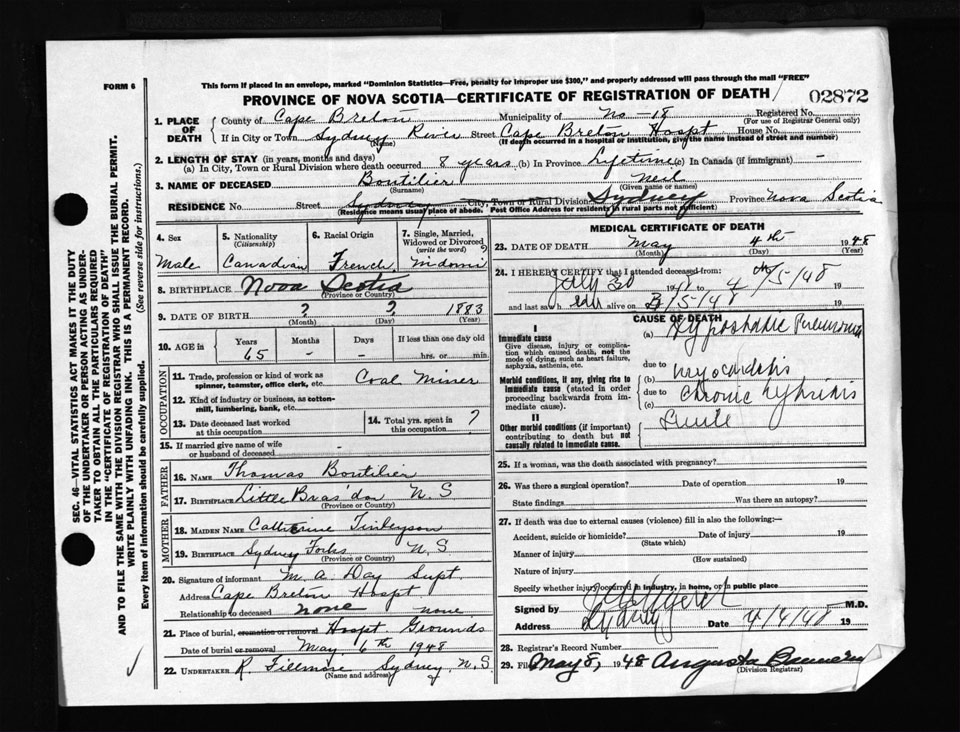 This form if placed in an envelope, marked "Dominion Statistics—Free, penalty for improper use $300," and properly addressed will pass through the mail "FREE"
FORM 6
PROVINCE OF NOVA SCOTIA—CERTIFICATE OF REGISTRATION OF DEATH
02872
SEC. 46—VITAL STATISTICS ACT MAKES IT THE DUTY
OF THE UNDERTAKER OR PERSON ACTING AS UNDER-
TAKER TO OBTAIN ALL THE PARTICULARS REQUIRED
IN THE "CERTIFICATE OF REGISTRATION OF DEATH"
AND TO FILE THE SAME WITH THE DIVISION REGISTRAR WHO SHALL ISSUE THE BURIAL PERMIT.
WRITE PLAINLY WITH UNFADING INK. THIS IS A PERMANENT RECORD.
Every item of information should be carefully supplied. (See reverse side for instructions.)
1. PLACE OF DEATH County of Cape Breton Municipality of No - 18 Registered No.
(For use of Registrar General only)
If in City or Town Sydney River Street Cape Breton Hospt House No.
(Name) (If death occurred in a hospital or institution, give its name instead of street and number)
2. LENGTH OF STAY (in years, months and days)
(a) In City, Town or Rural Division where death occurred 8 years (b) In Province Lifetime (c) In Canada (if immigrant) -
3. NAME OF DECEASED Boutilier Neil
(Surname) (Given name or names)
RESIDENCE No. Street Sydney City, Town or Rural Division Sydney Province Nova Scotia
(Residence means usual place of abode. Post Office Address for residents in rural parts not sufficient)
4. Sex
Male
5. Nationality
(Citizenship)
Canadian
6. Racial Origin
French
7. Single, Married,
Widowed or Divorced
(write the word)
8. BIRTHPLACE Nova Scotia
(Province or Country)
9. DATE OF BIRTH ? ? 1883
(Month) (Day) (Year)
10. AGE in Years Months Days If less than one day old
65 - - hrs. or min.
OCCUPATION
11. Trade, profession or kind of work as
spinner, teamster, office clerk, etc. Coal Miner
12. Kind of industry or business, as cotton-
mill, lumbering, bank, etc.
13. Date deceased last worked
at this occupation
14. Total yrs. spent in
this occupation ?
15. If married give name of wife
or husband of deceased -
FATHER
16. NAME Thomas Boutilier
17. BIRTHPLACE Little Bras'dor N.S
(Province or Country)
MOTHER
18. MAIDEN NAME Catherine Finleyson
19. BIRTHPLACE Sydney Forks N.S.
(Province or Country)
20. Signature of informant M. A. Day Supt.
Address Cape Breton Hospt
Relationship to deceased none none
21. Place of burial, cremation or removal Hospt Grounds
Date of burial or removal May 6th 1948
22. UNDERTAKER R. Fillmore Sydney N.S.
(Name and address)
MEDICAL CERTIFICATE OF DEATH
23. DATE OF DEATH May 4th 1948
(Month) (Day)
24. I HEREBY CERTIFY that I attended deceased from:
30 19 to 4th/5/48 19
and last saw alive on 3/5/48 19
CAUSE OF DEATH
I
Immediate cause
Give disease, injury or complica-
tion which caused death, not the
mode of dying, such as heart failure,
asphyxia, asthenia, etc.
(a) Hypostatic Pneumonia
due to
Morbid conditions, if any, giving rise to
immediate cause (stated in order
proceeding backwards from im-
mediate cause).
(b) myocarditis
due to
(c) chronic nephritis
II
Other morbid conditions (if important)
contributing to death but not
causally related to immediate cause.
Senile
25. If a woman, was the death associated with pregnancy?
26. Was there a surgical operation? Date of operation 19
State findings Was there an autopsy?
27. If death was due to external causes (violence) fill in also the following:—
Accident, suicide or homicide? Date of injury 19
(State which)
Manner of injury
(How sustained)
Nature of injury
Specify whether injury occurred in industry, in home, or in public place
Signed by M.D.
Address Sydney Date 4/4/48 19
28. Registrar's Record Number
29. Filed May 8, 1948 Augusta
(Division Registrar)